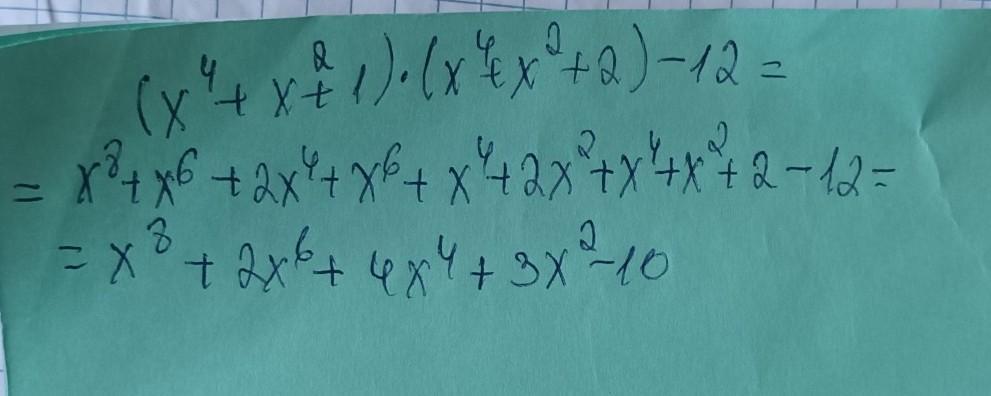 (x⁴+x²+1)·(x⁴+x²+2)-12=
=x⁸+x⁶+2x⁴+x⁶+x⁴+2x²+x⁴+x²+2-12=
=x⁸+2x⁶+4x⁴+3x²-10